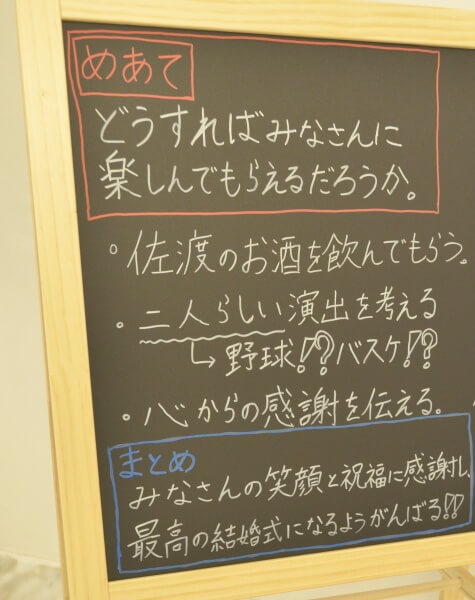 めあて
どうすればみなさんに
楽しんでもらえるだろうか。
。佐渡のお酒を飲んでもらう。
。二人らしい演出を考える
↳野球!?バスケ!?
・心からの感謝を伝える。
まとめ
みなさんの笑顔と祝福に感謝し、
最高の結婚式になるようがんばる!!